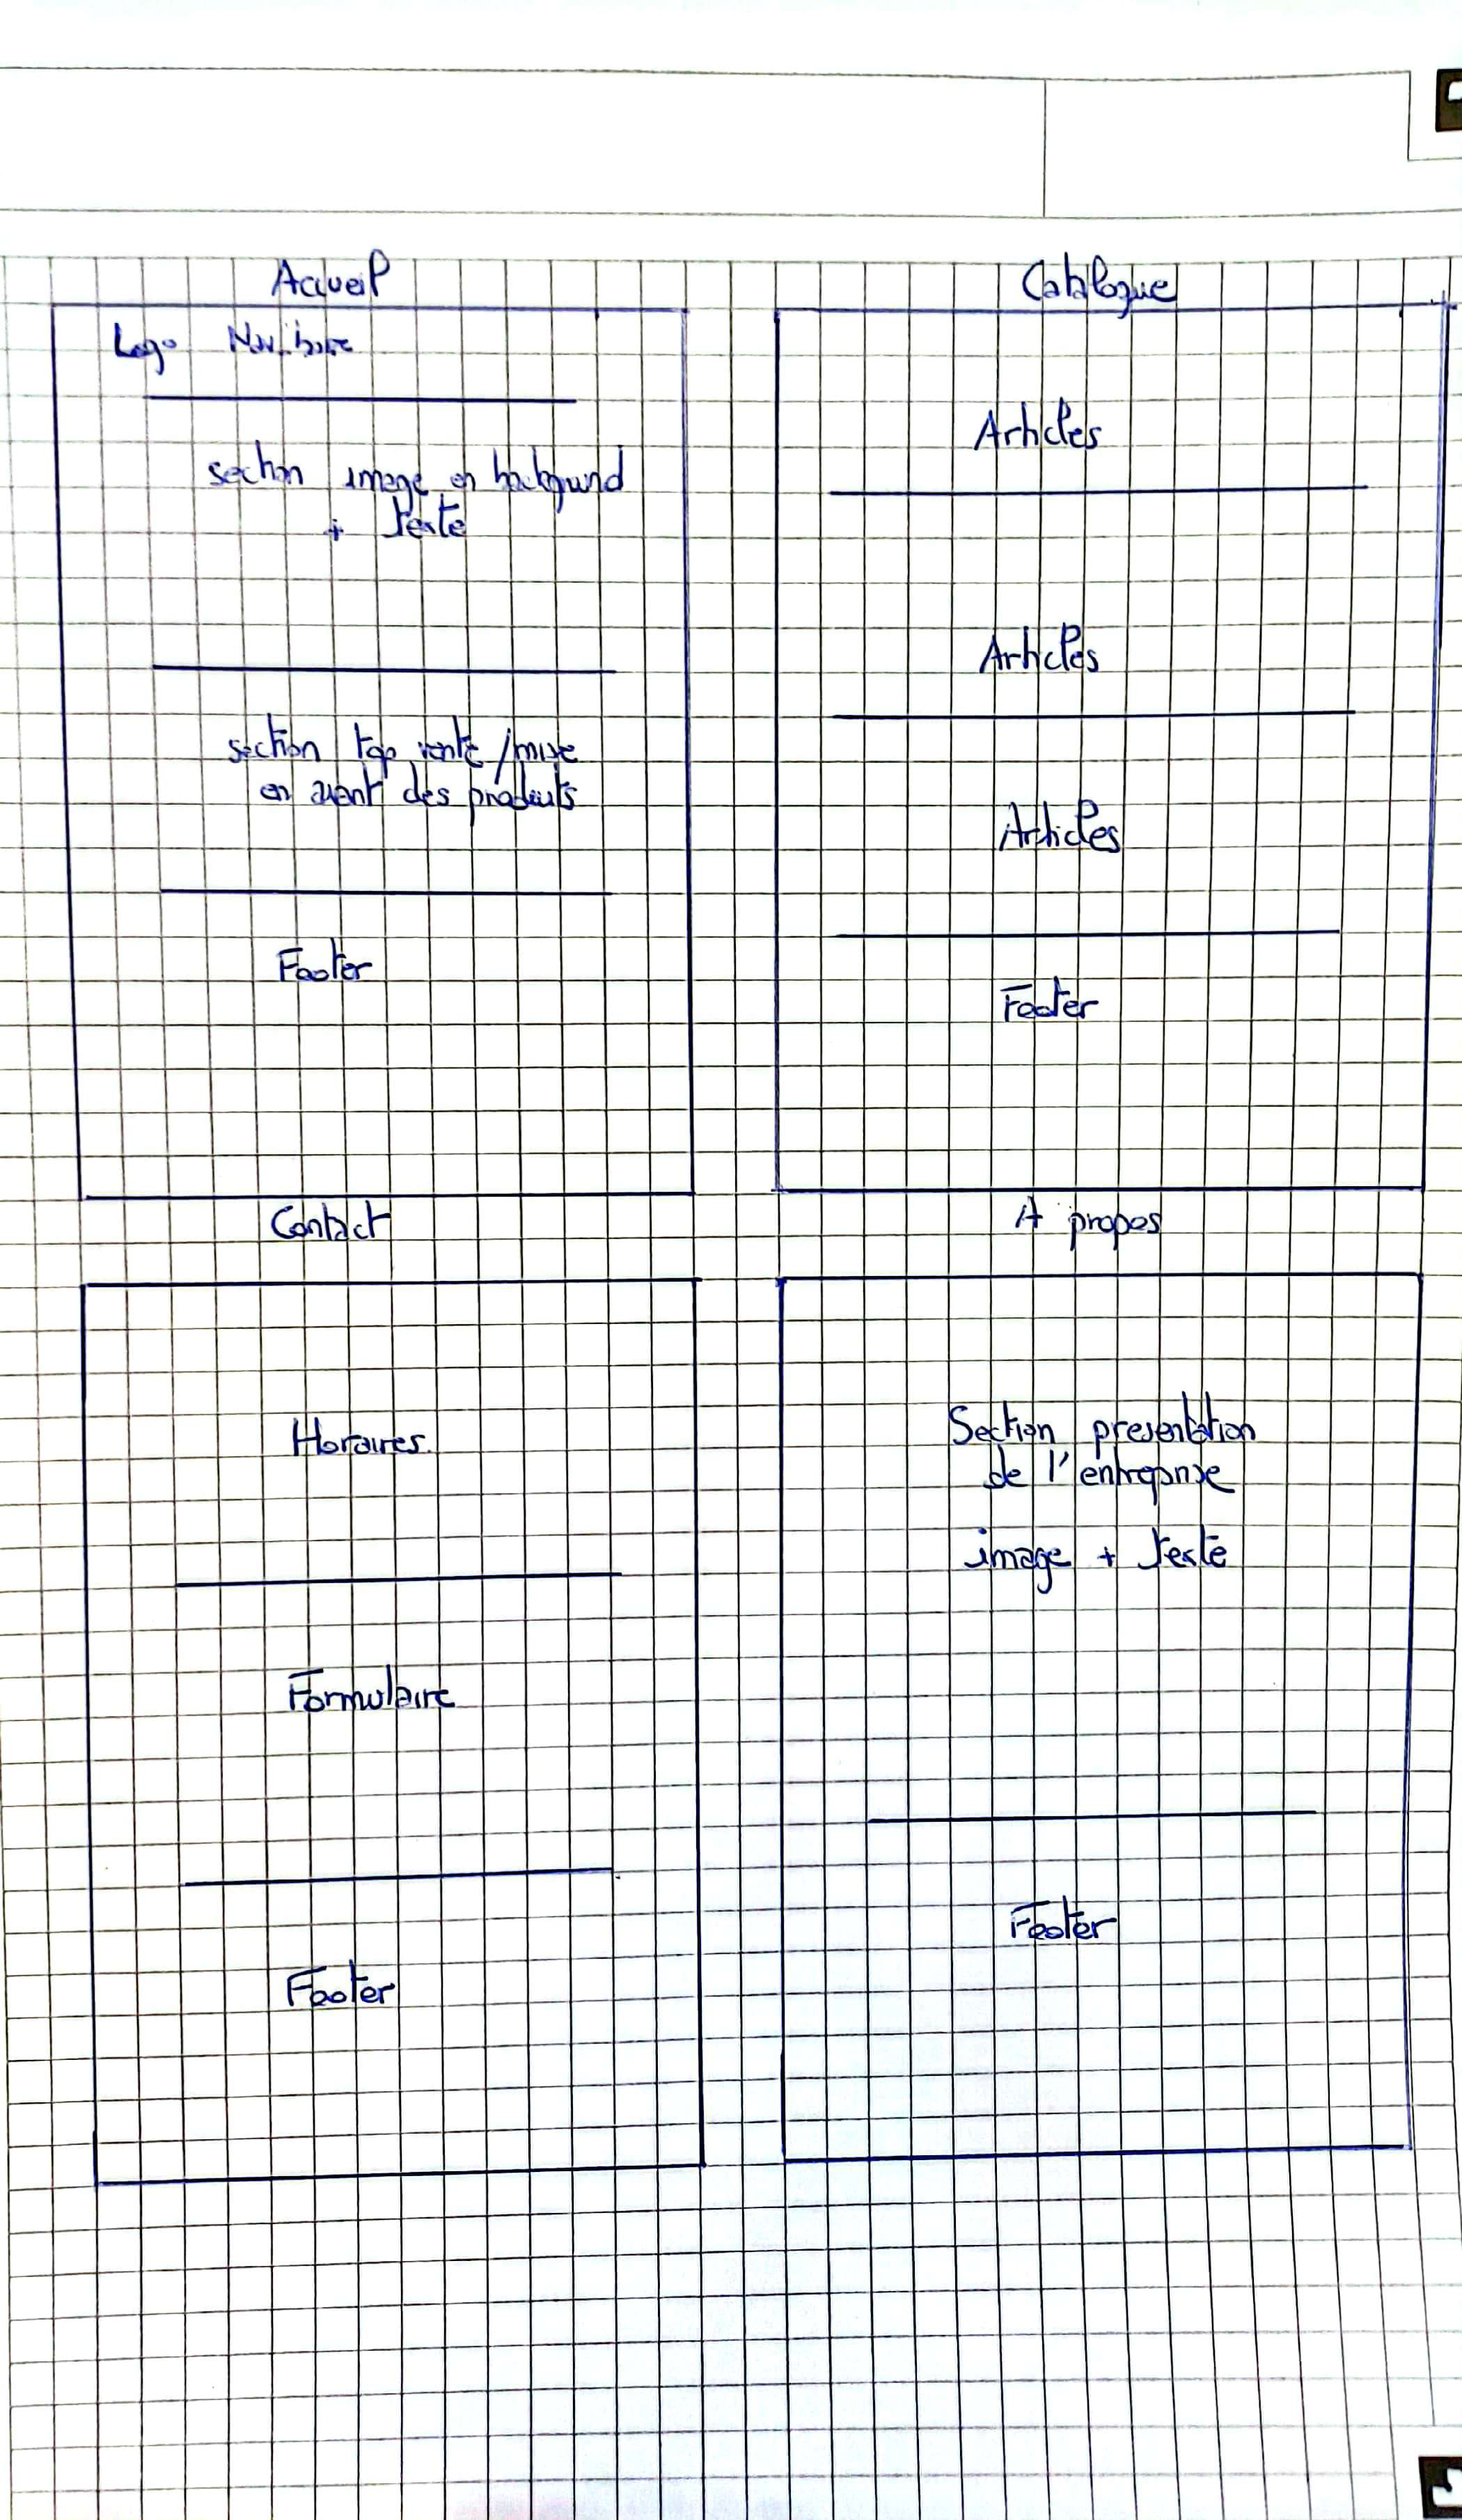 Accueil
Logo Nav.barre
section image en background
+ texte
section top vente / mise
en avant des produits
Footer
Catalogue
Articles
Articles
Articles
Footer
Contact
Horaires
Formulaire
Footer
A propos
Section presentation
de l'entreprise
image + texte
Footer